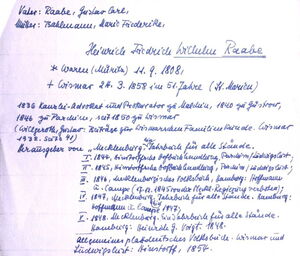 Vater: Raabe, Gustav Carl,
Mutter: Bahlmann, Maria Friederike,
Heinrich Friedrich Wilhelm Raabe
* Waren (Müritz) 11.9.1808,
+ Wismar 24. 3. 1858 im 51. Jahre (St. Marien)
1836 Kanzlei-Advokat und Prokurator zu Malchin, 1840 zu Güstrow,
1846 zu Parchim, seit 1850 zu Wismar
(Willgeroth, Gustav: Beiträge zur Wismarschen Familienkunde. Wismar
1932. Seite 91)
Herausgeber von „Mecklenburg". Jahrbuch für alle Stände.
I. 1844. Hinstorffsche Hofbuchhandlung, Parchim, Ludwigslust.
II. 1845, Hinstorffsche Hofbuchhandlung, Parchim, Ludwigslust;
III. 1846, Mecklenburgisches Volksbuch, Hamburg: Hoffmann
u. Campe
IV. 1847, Mecklenburg. Jahrbuch für alle Stände. Hamburg:
Hoffmann u. Campe 1847;
V. 1848. Mecklenburg. Ein Jahrbuch für alle Stände.
Hamburg: G. Voigt. 1848.
Allgemeines plattdeutsches Volksbuch. Wismar und
Ludwigslust: Hinstorff, 1854.